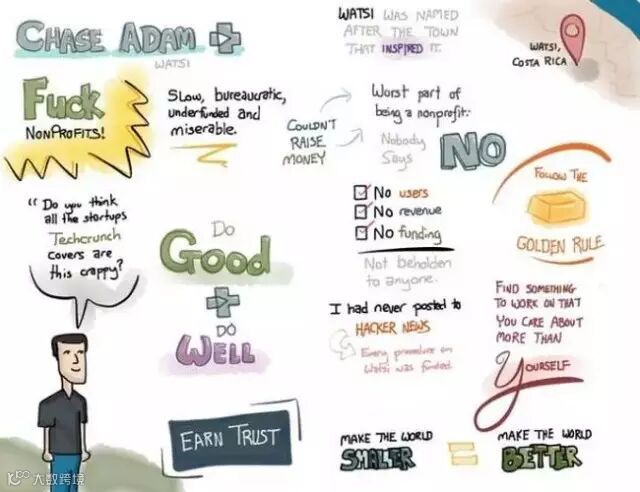 CHASE ADAM +
WATSI
WATSI WAS NAMED
AFTER THE TOWN
THAT INSPIRED IT.
WATSI,
COSTA RICA
Fuck
NONPROFITS!
SLOW, bureaucratic,
underfunded and
miserable.
COULDN'T
RAISE
MONEY
Worst part of
being a nonprofit:
Nobody
Says
NO
FOLLOW THE
GOLDEN RULE
"Do you think
all the startups
Techcrunch
covers are
this crappy?
Do
Good
+
DO
WELL
No users
No revenue
No funding
Not beholden
to anyone.
I had never posted to
HACKER NEWS
Every procedure on
Watsi was funded.
FIND SOMETHING
TO WORK ON THAT
YOU CARE ABOUT
MORE THAN
YOURSELF
EARN TRUST
MAKE THE WORLD
SMALLER
=
MAKE THE WORLD
BETTER
大数跨境